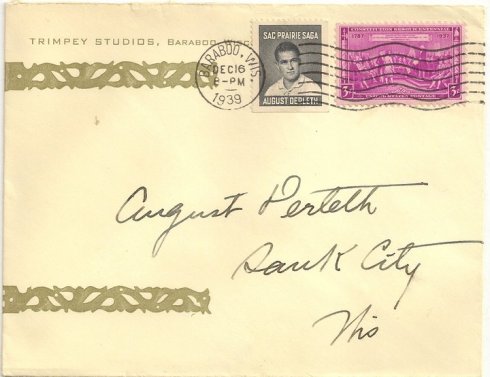 TRIMPEY STUDIOS, BARABOO,
BARABOO, WIS.
DEC 16
PM
1939
SAC PRAIRIE SAGA
AUGUST DERLETH
CONSTITUTION SESQUICENTENNIAL
1787 1937
3¢ 3¢
August Derleth
Sauk City
Wis